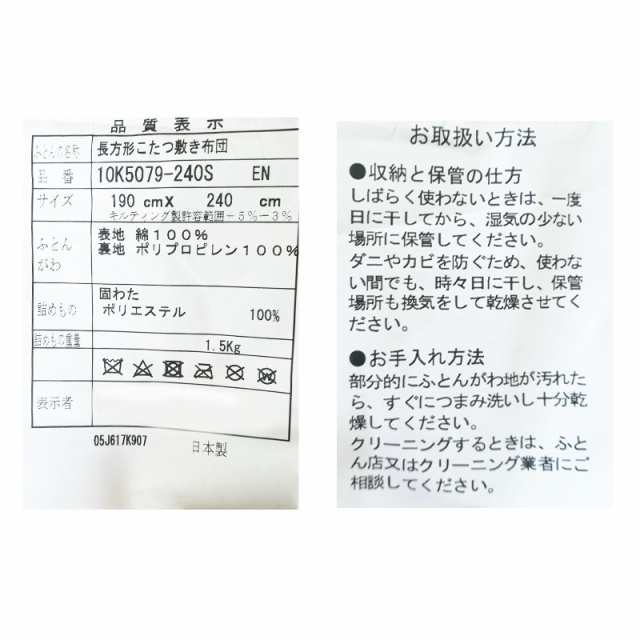 品質表示
ふとんの名称 長方形こたつ敷き布団
品番 10K5079-240S EN
サイズ 190 cmX 240 cm
キルティング製許容範囲－5％－3％
ふとんがわ 表地 綿１００％
裏地 ポリプロピレン１００％
詰めもの 固わた
ポリエステル 100％
詰めもの重量 1.5Kg
表示者
05J617K907 日本製
お取扱い方法
●収納と保管の仕方
しばらく使わないときは、一度
日に干してから、湿気の少ない
場所に保管してください。
ダニやカビを防ぐため、使わな
い間でも、時々日に干し、保管
場所も換気をして乾燥させてく
ださい。
●お手入れ方法
部分的にふとんがわ地が汚れた
ら、すぐにつまみ洗いし十分乾
燥してください。
クリーニングするときは、ふと
ん店又はクリーニング業者にご
相談してください。